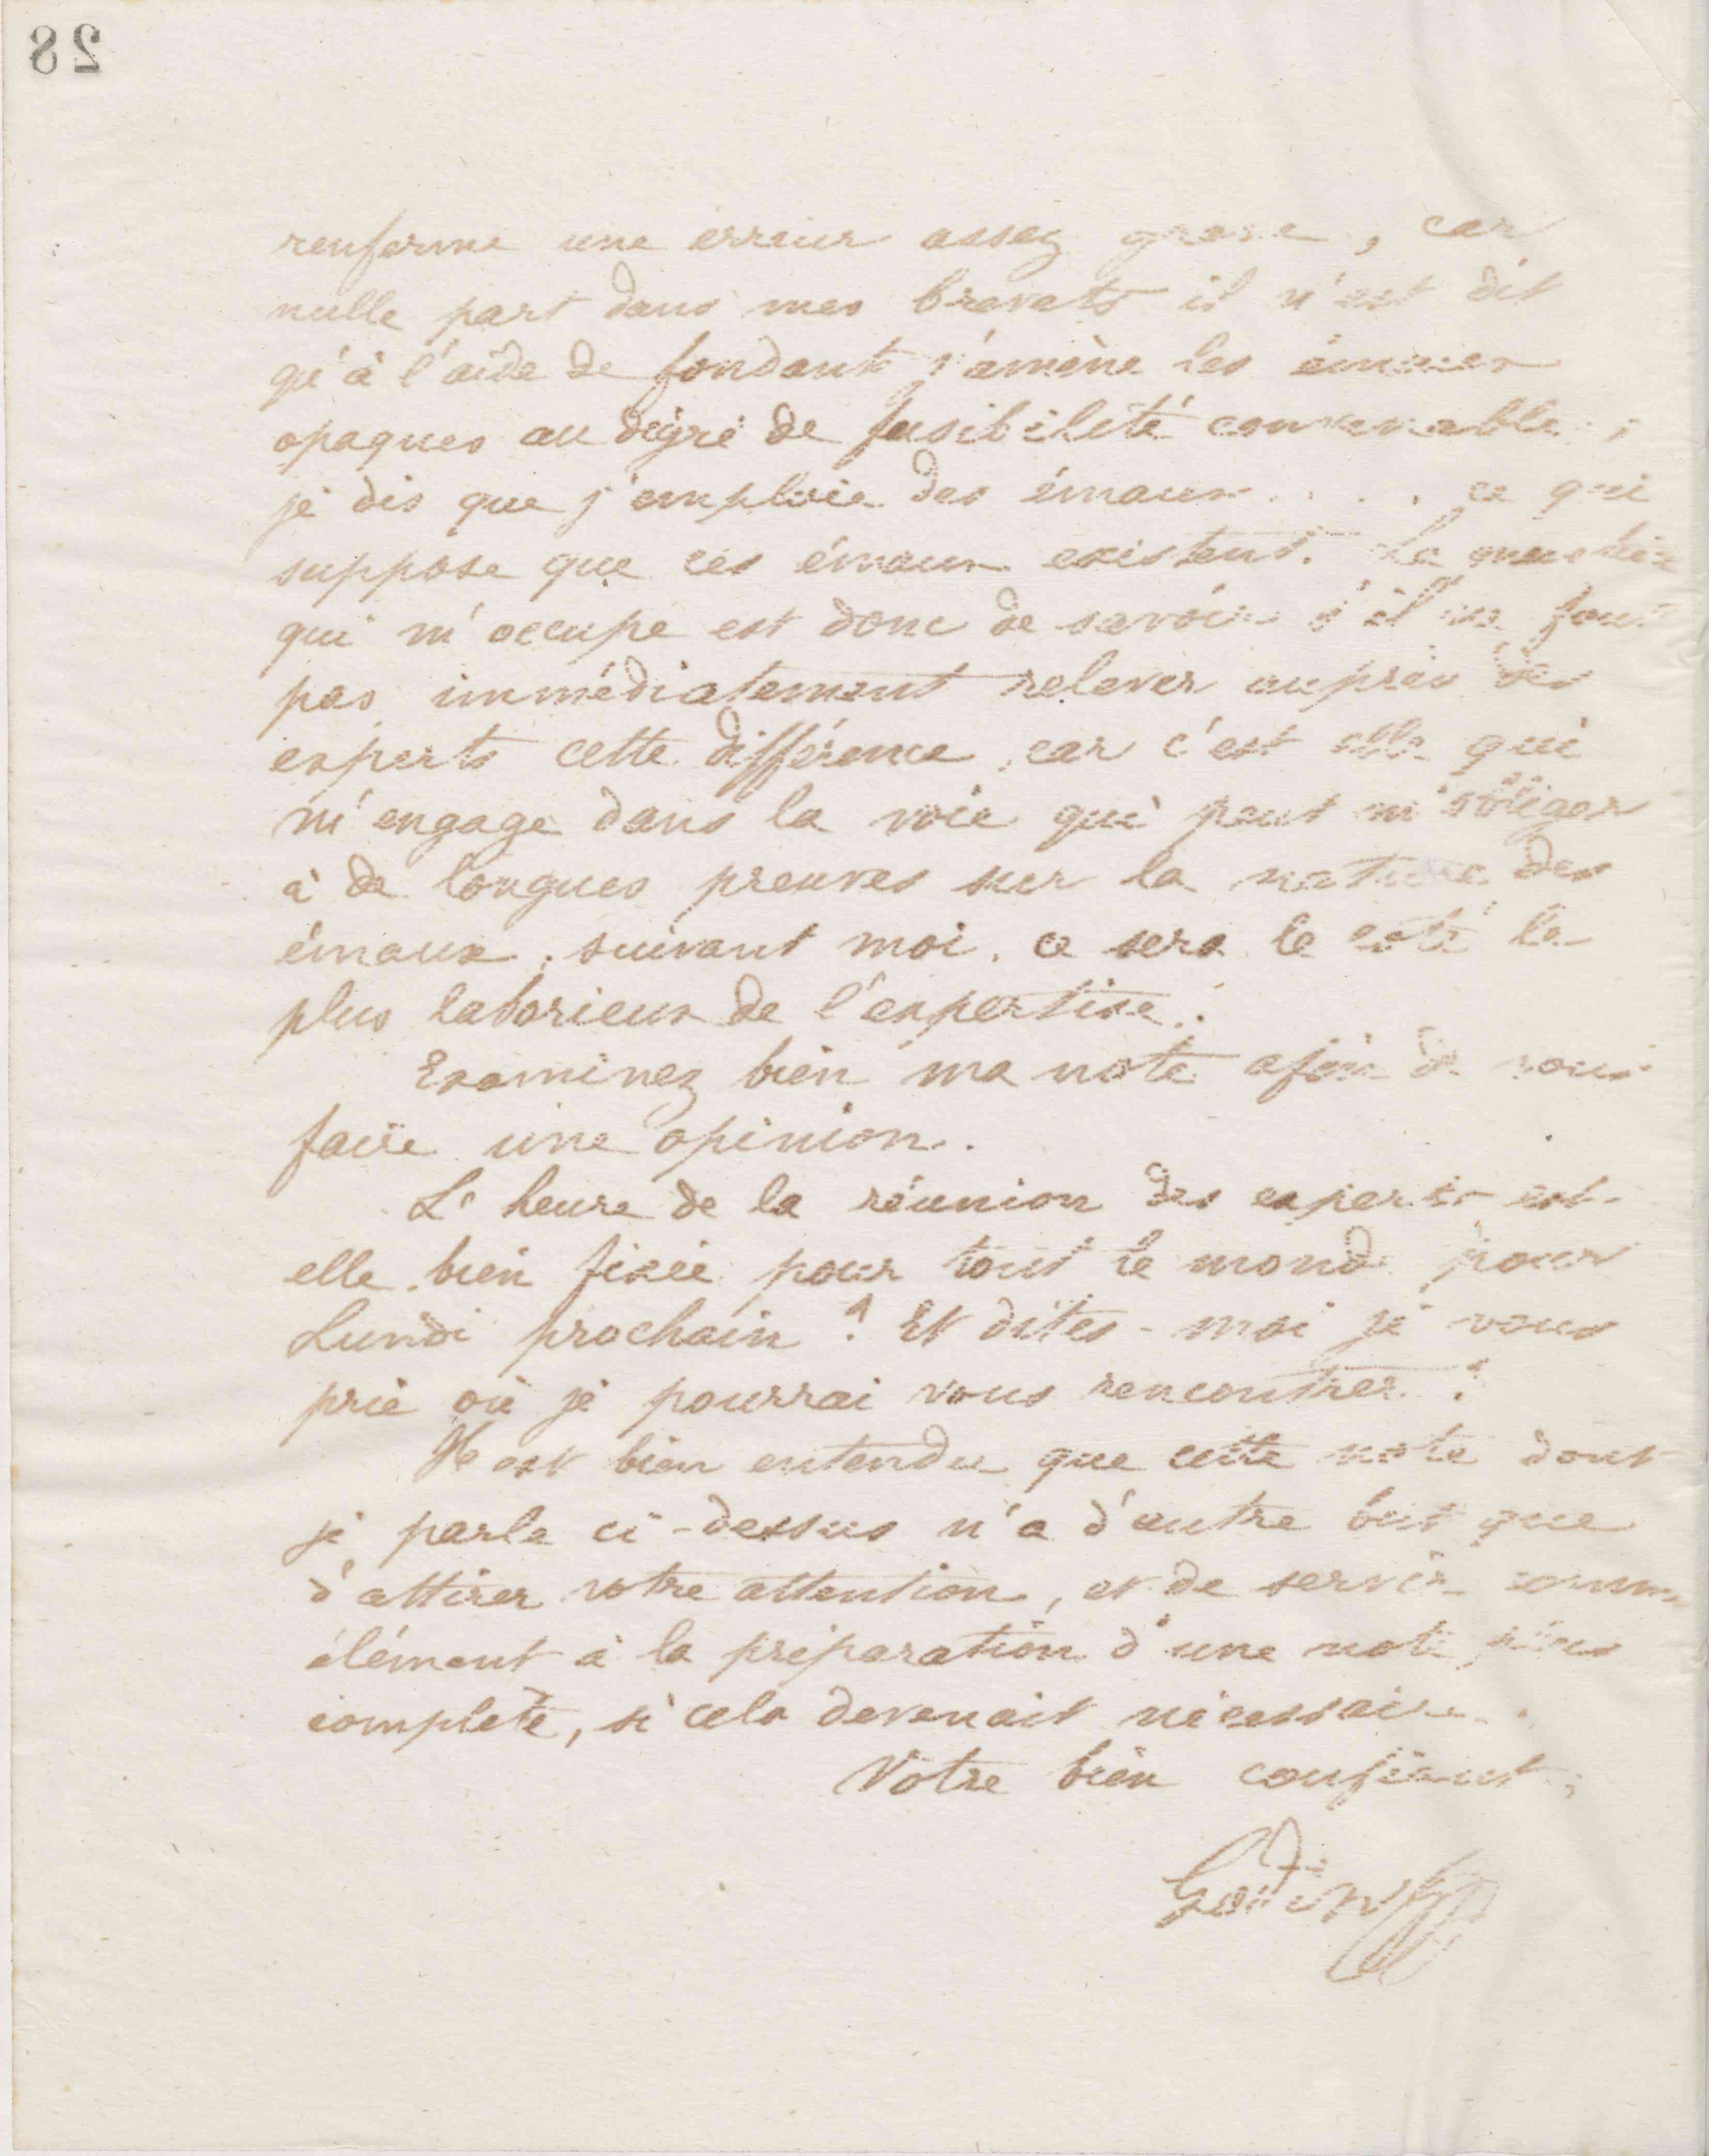 28
renferme une erreur assez grave, car
nulle part dans mes brevets il n'est dit
qu'à l'aide de fondants j'amène les émaux
opaques au dégré de fusibilité convenable ;
je dis que j'emploie des émaux . . . . ce qui
suppose que ces émaux existent. La question
qui m'occupe est donc de savoir s'il ne faut
pas immédiatement relever auprès des
experts cette différence, car c'est elle qui
m'engage dans la voie qui peut m'obliger
à de longues preuves sur la nature des
émaux, suivant moi, ce sera le côté le
plus laborieux de l'expertise.
Examinez bien ma note afin de vous
faire une opinion.
L'heure de la réunion des experts est-
elle bien fixée pour tout le monde pour
Lundi prochain ? Et dites-moi je vous
prie où je pourrai vous rencontrer ?
Il est bien entendu que cette note dont
je parle ci-dessus n'a d'autre but que
d'attirer votre attention, et de servir comme
élément à la préparation d'une note plus
complète, si cela devenait nécessaire.
Votre bien confiant,
Godin